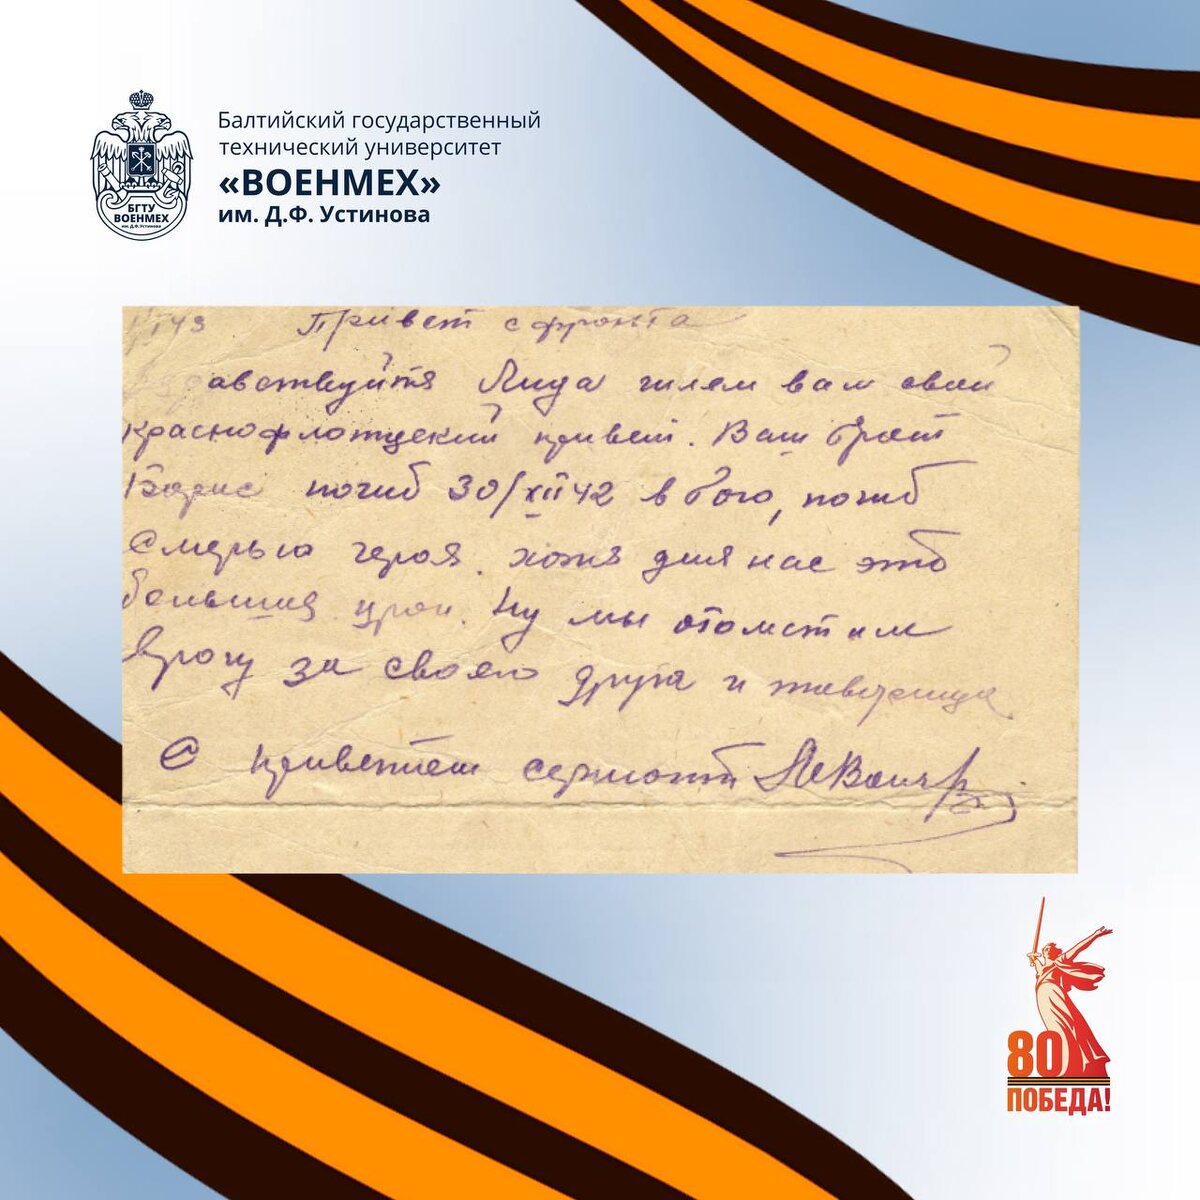 Балтийский государственный
технический университет
«ВОЕНМЕХ»
им. Д.Ф. Устинова
БГТУ
ВОЕНМЕХ
им. Д.Ф.Устинова
Привет с фронта
авствуйтя Лида шлем вам свой
краснофлотцский привет. Ваш брат
Борис погиб 30/XII 42 в бою, погиб
Смерью героя. хотя для нас это
большия урон. Ну мы отомстим
врагу за своего друга и товарища
С приветом сержант
80
ПОБЕДА!